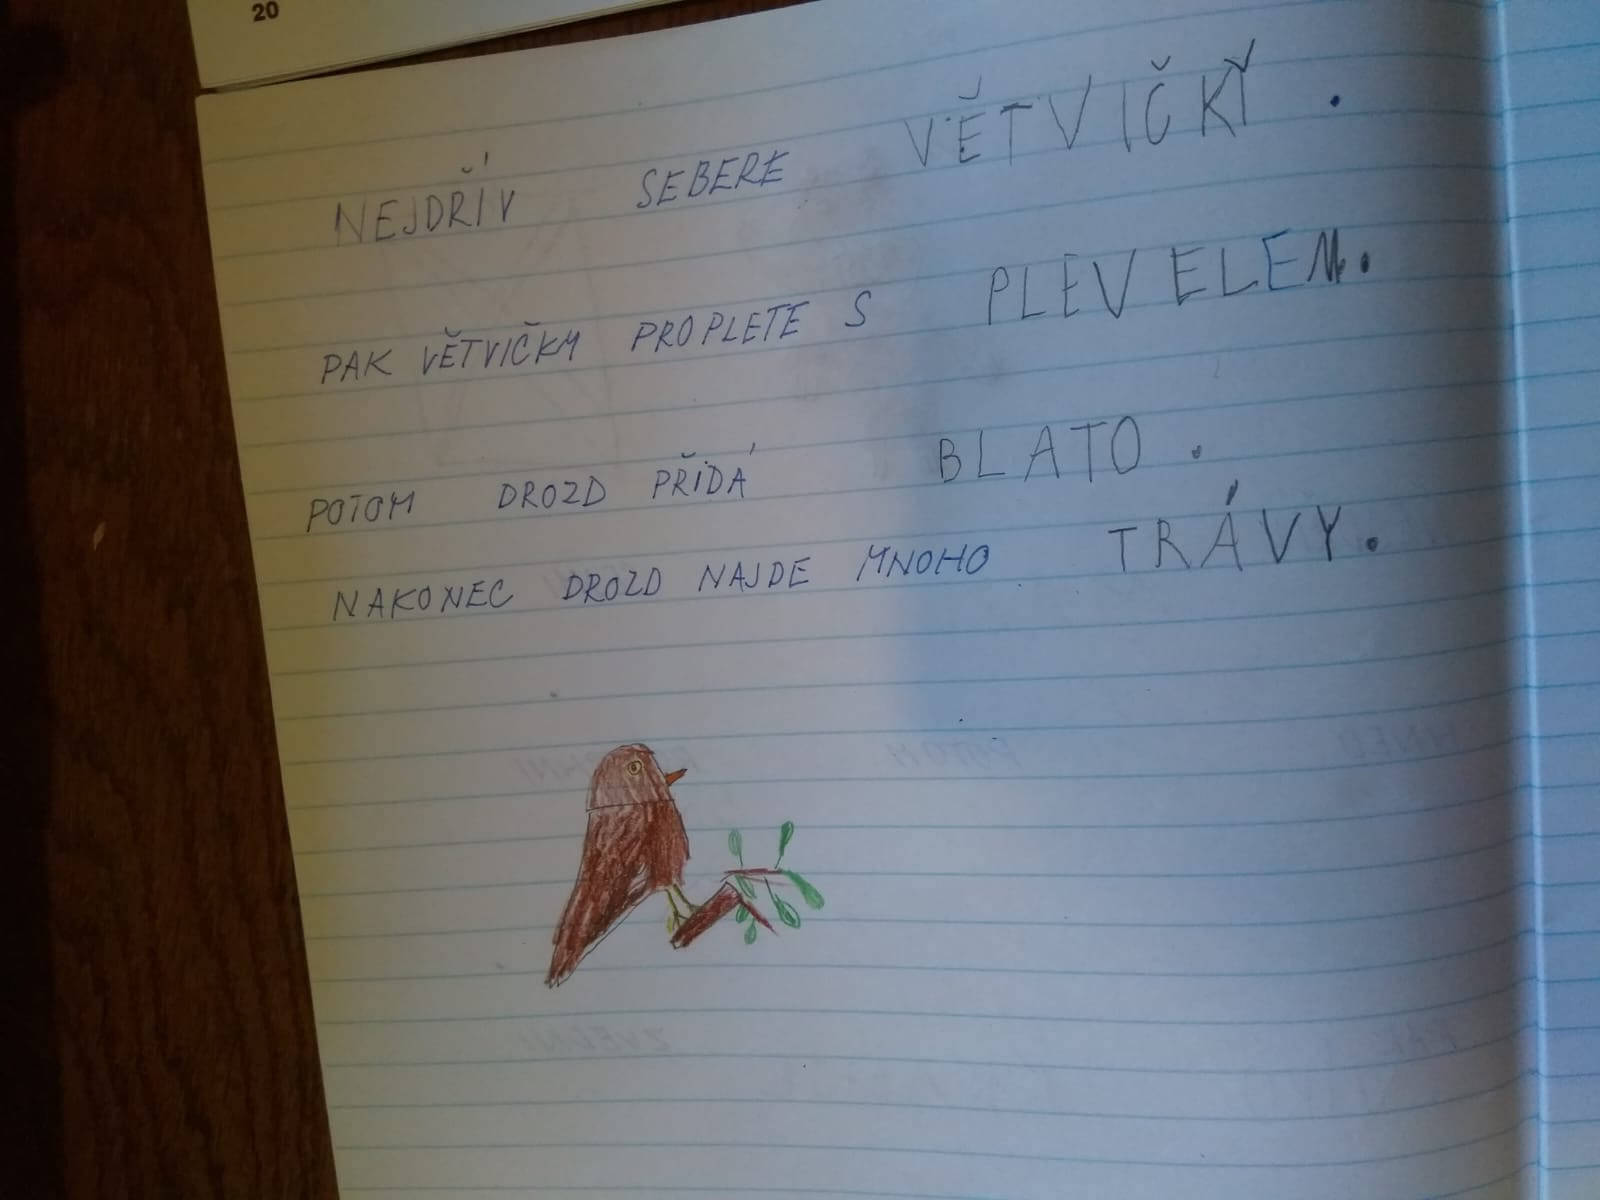 20
NEJDŘÍV SEBERE VĚTVIČKY.
PAK VĚTVIČKY PROPLETE S PLEVELEM.
POTOM DROZD PŘIDÁ BLATO.
NAKONEC DROZD NAJDE MNOHO TRÁVY.